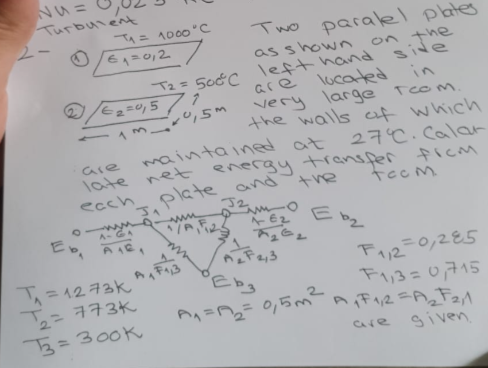 Nu = 0,023
Turbulent
2-
① T1 = 1000°C
ε1=0,2
T2 = 500°C
② ε2=0,5
0,5m
1 m
Two paralel plates
as shown on the
left hand side
are lucated in
very large room.
the walls of which
are maintained at 27°C. Calcu
late net energy transfer from
each plate and the room
Eb1
1-ε1/A1ε1
J1
1/A1F1,2
J2
1-ε2/A2ε2
Eb2
1/A1F1,3
1/A2F2,3
Eb3
T1 = 1273K
T2 = 773K
T3 = 300K
A1 = A2 = 0,5m²
F1,2 = 0,285
F1,3 = 0,715
A1F1,2 = A2F2,1
are given